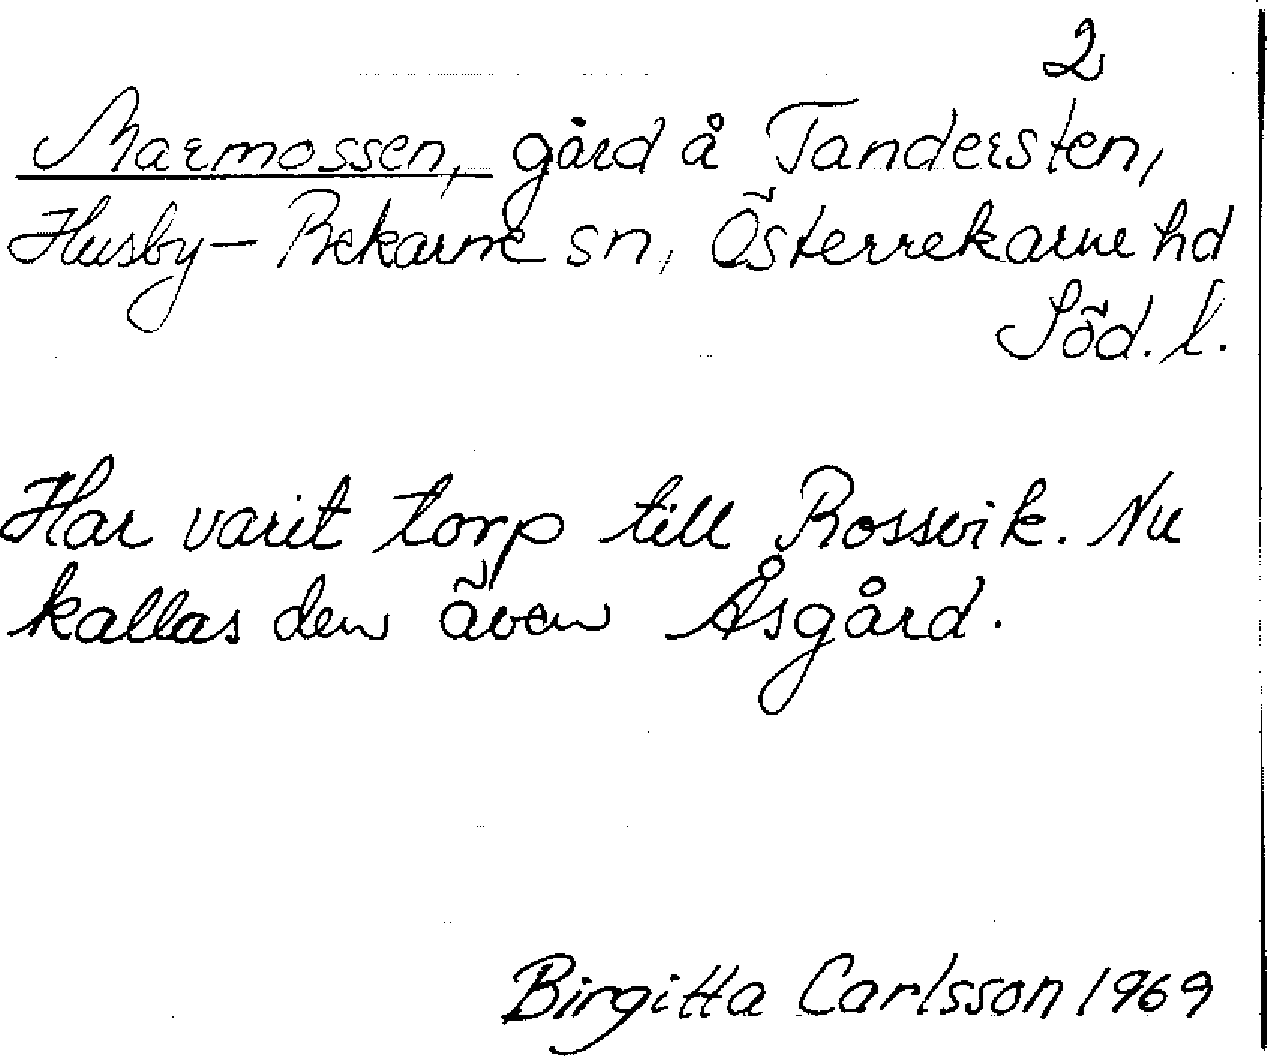 2
Marmossen, gård å Tandersten,
Husby-Rekarne sn, Österrekarne hd
Söd. l.
Har varit torp till Rossvik. Nu
kallas den även Åsgård.
Birgitta Carlsson 1969